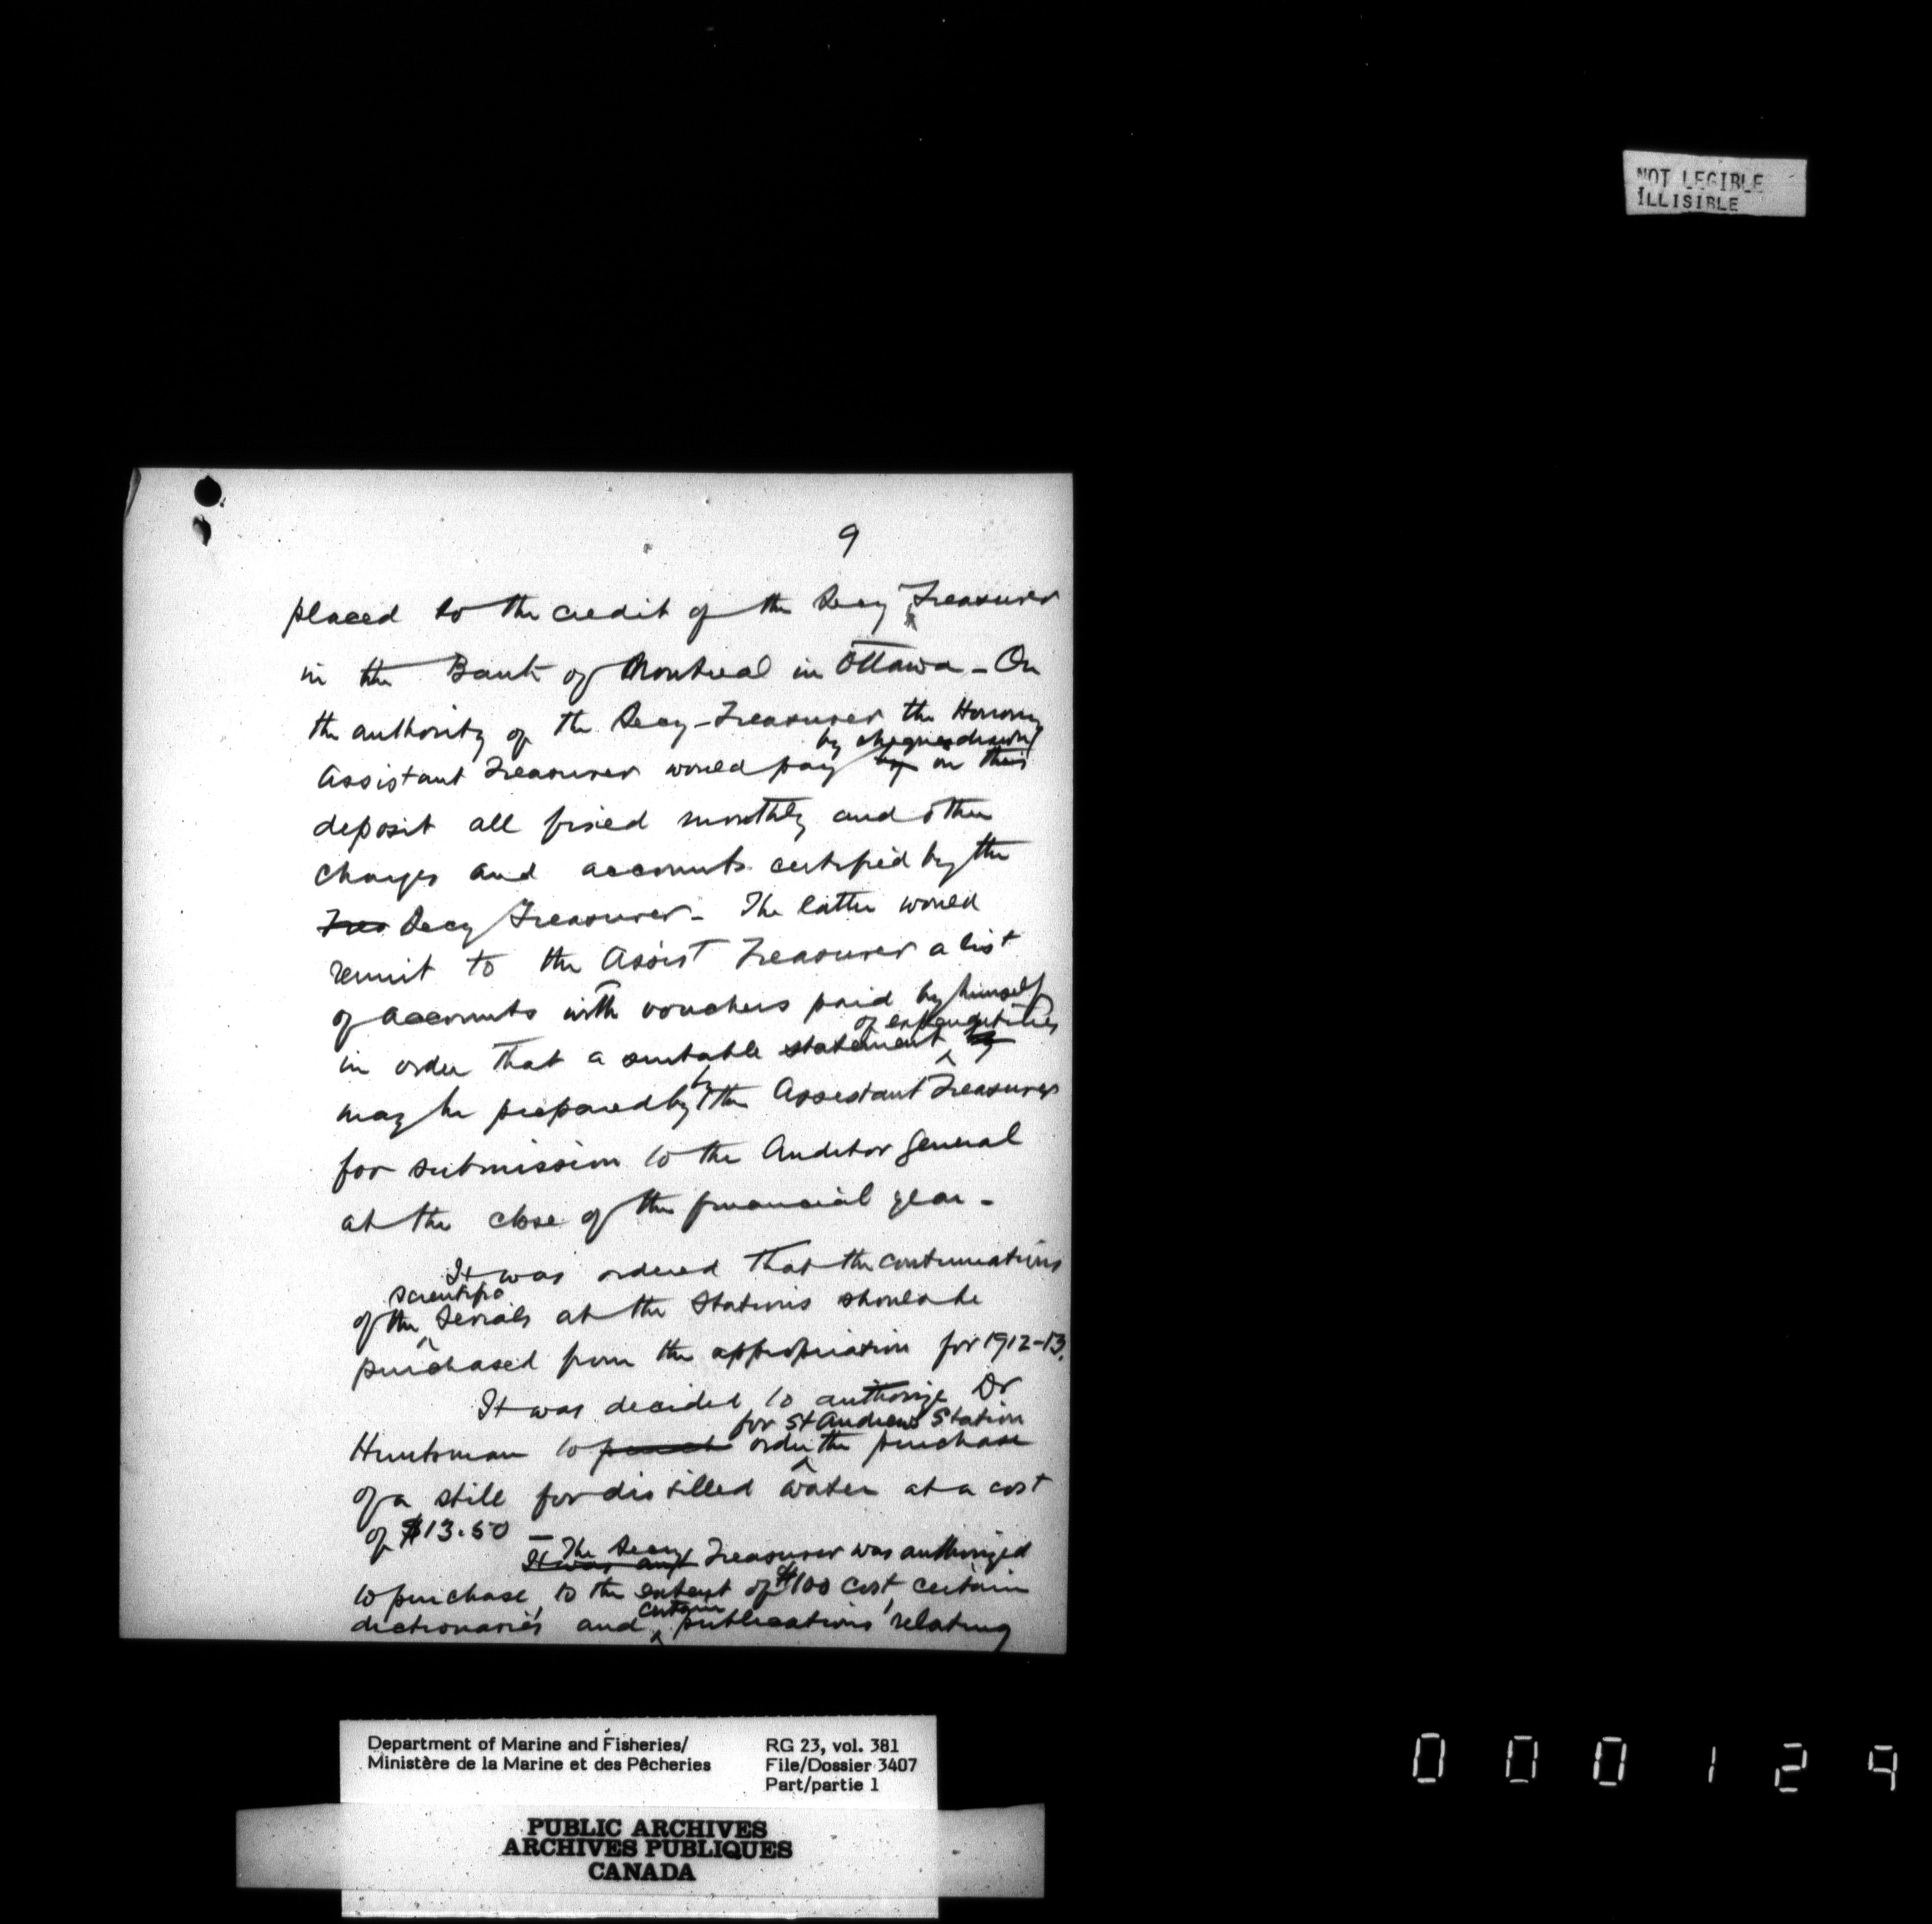 NOT LEGIBLE
ILLISIBLE
9
placed to the credit of the Secy Treasurer
in the Bank of Montreal in Ottawa - On
the authority of the Secy-Treasurer the Honorary
by cheques drawn
Assistant Treasurer would pay by on this
deposit all fixed monthly and other
charges and accounts certified by the
Tres Secy Treasurer - The latter would
remit to the Assist Treasurer a list
of accounts with vouchers paid by himself
of expenditures
in order that a suitable statement
may be prepared by the Assistant Treasurer
for submission to the Auditor General
at the close of the financial year -
It was ordered that the continuations
scientific
of the serials at the Stations should be
purchased from the appropriation for 1912-13.
It was decided to authorize Dr
for St Andrews Station
Huntsman to order the purchase
of a still for distilled water at a cost
of $13.50 -
The Secy Treasurer was authorized
It was
to purchase, to the extent of $100 cost, certain
certain
dictionaries and publications relating
Department of Marine and Fisheries/
Ministère de la Marine et des Pêcheries
RG 23, vol. 381
File/Dossier 3407
Part/partie 1
PUBLIC ARCHIVES
ARCHIVES PUBLIQUES
CANADA
000129